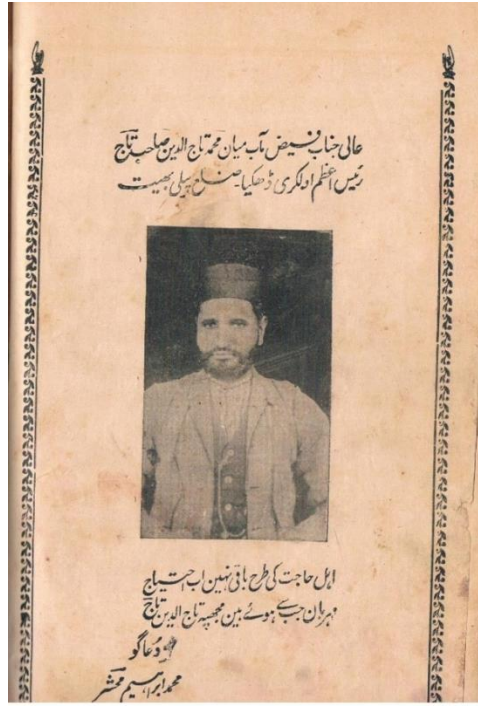 عالی جناب فیض مآب میان محمد تاج الدین صاحب تاج
رئیس اعظم اولکری ڈھکیا۔ ضلع پیلی بھیت
اہل حاجت کی طرح باقی نہین اب احتیاج
مہربان جب سے ہوئے ہین مجھپہ تاج الدین تاج
دعاگو
محمد ابراہیم محشر